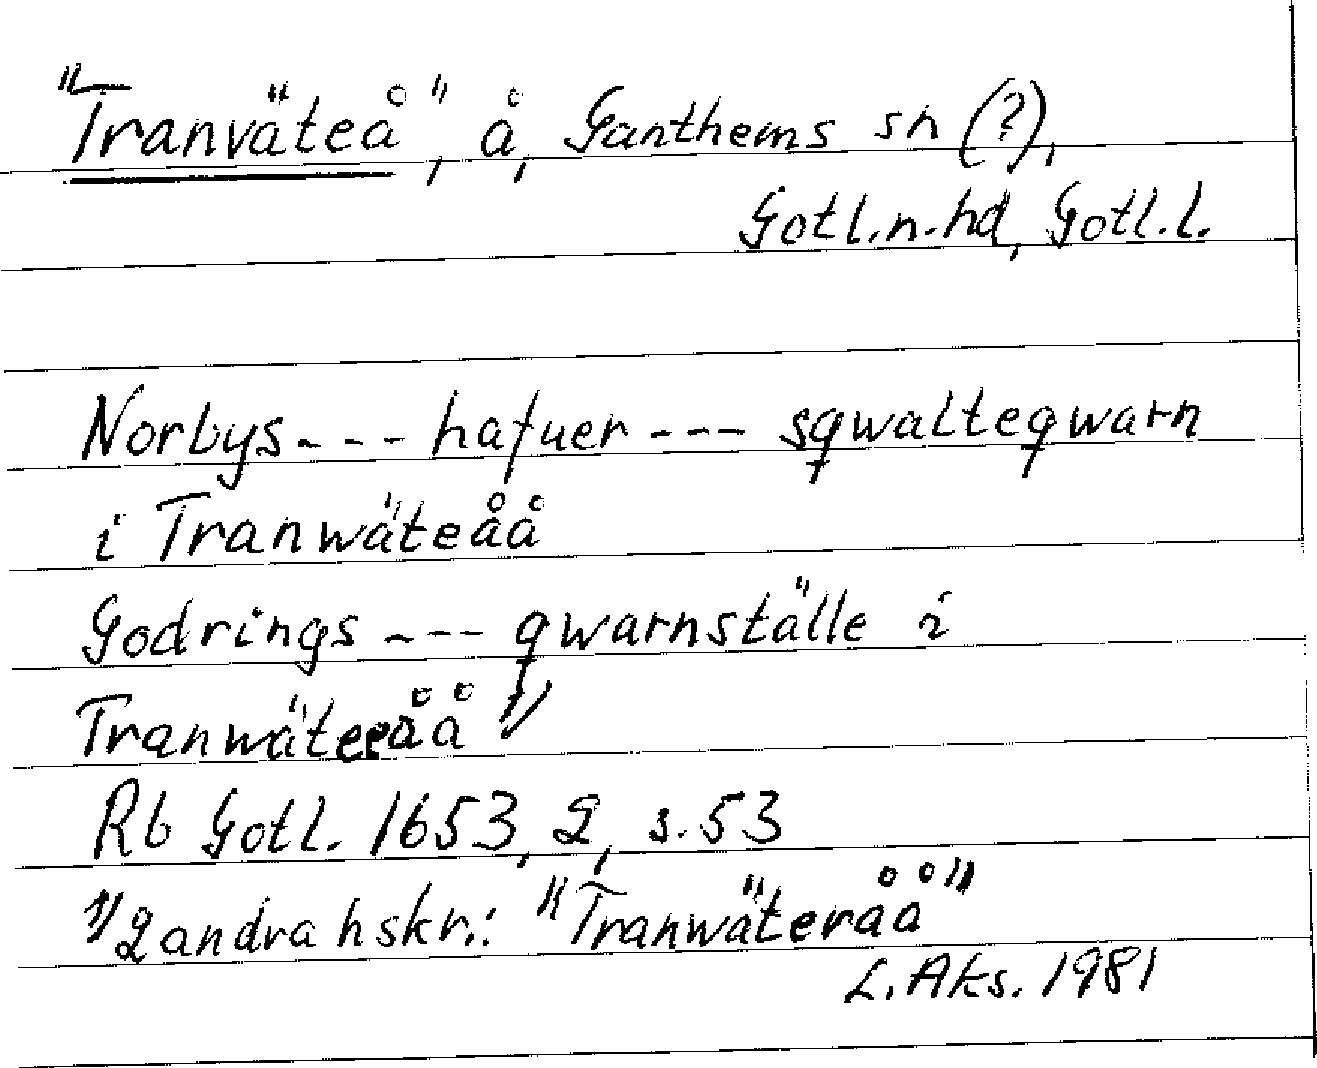 "Tranväteå", å, Ganthems sn (?),
Gotl.n.hd, Gotl.l.
Norbys --- hafuer --- sqwalteqwarn
i Tranwäteåå
Godrings --- qwarnställe i
Tranwäteåå 1)
Rb Gotl. 1653, 2, s. 53
1) 2 andra hskr.: "Tranwäteråå"
L. Aks. 1981